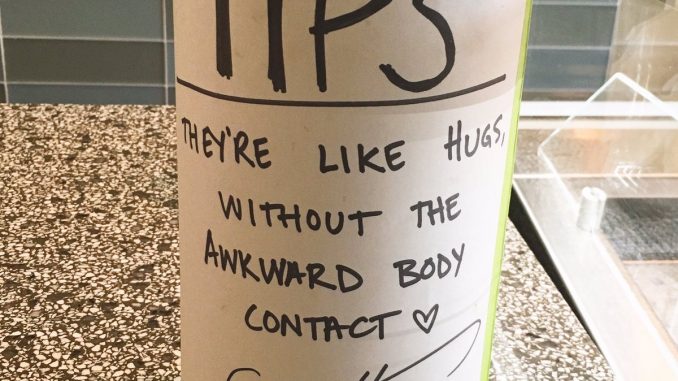 TIPS
THEY'RE LIKE HUGS,
WITHOUT THE
AWKWARD BODY
CONTACT ♡